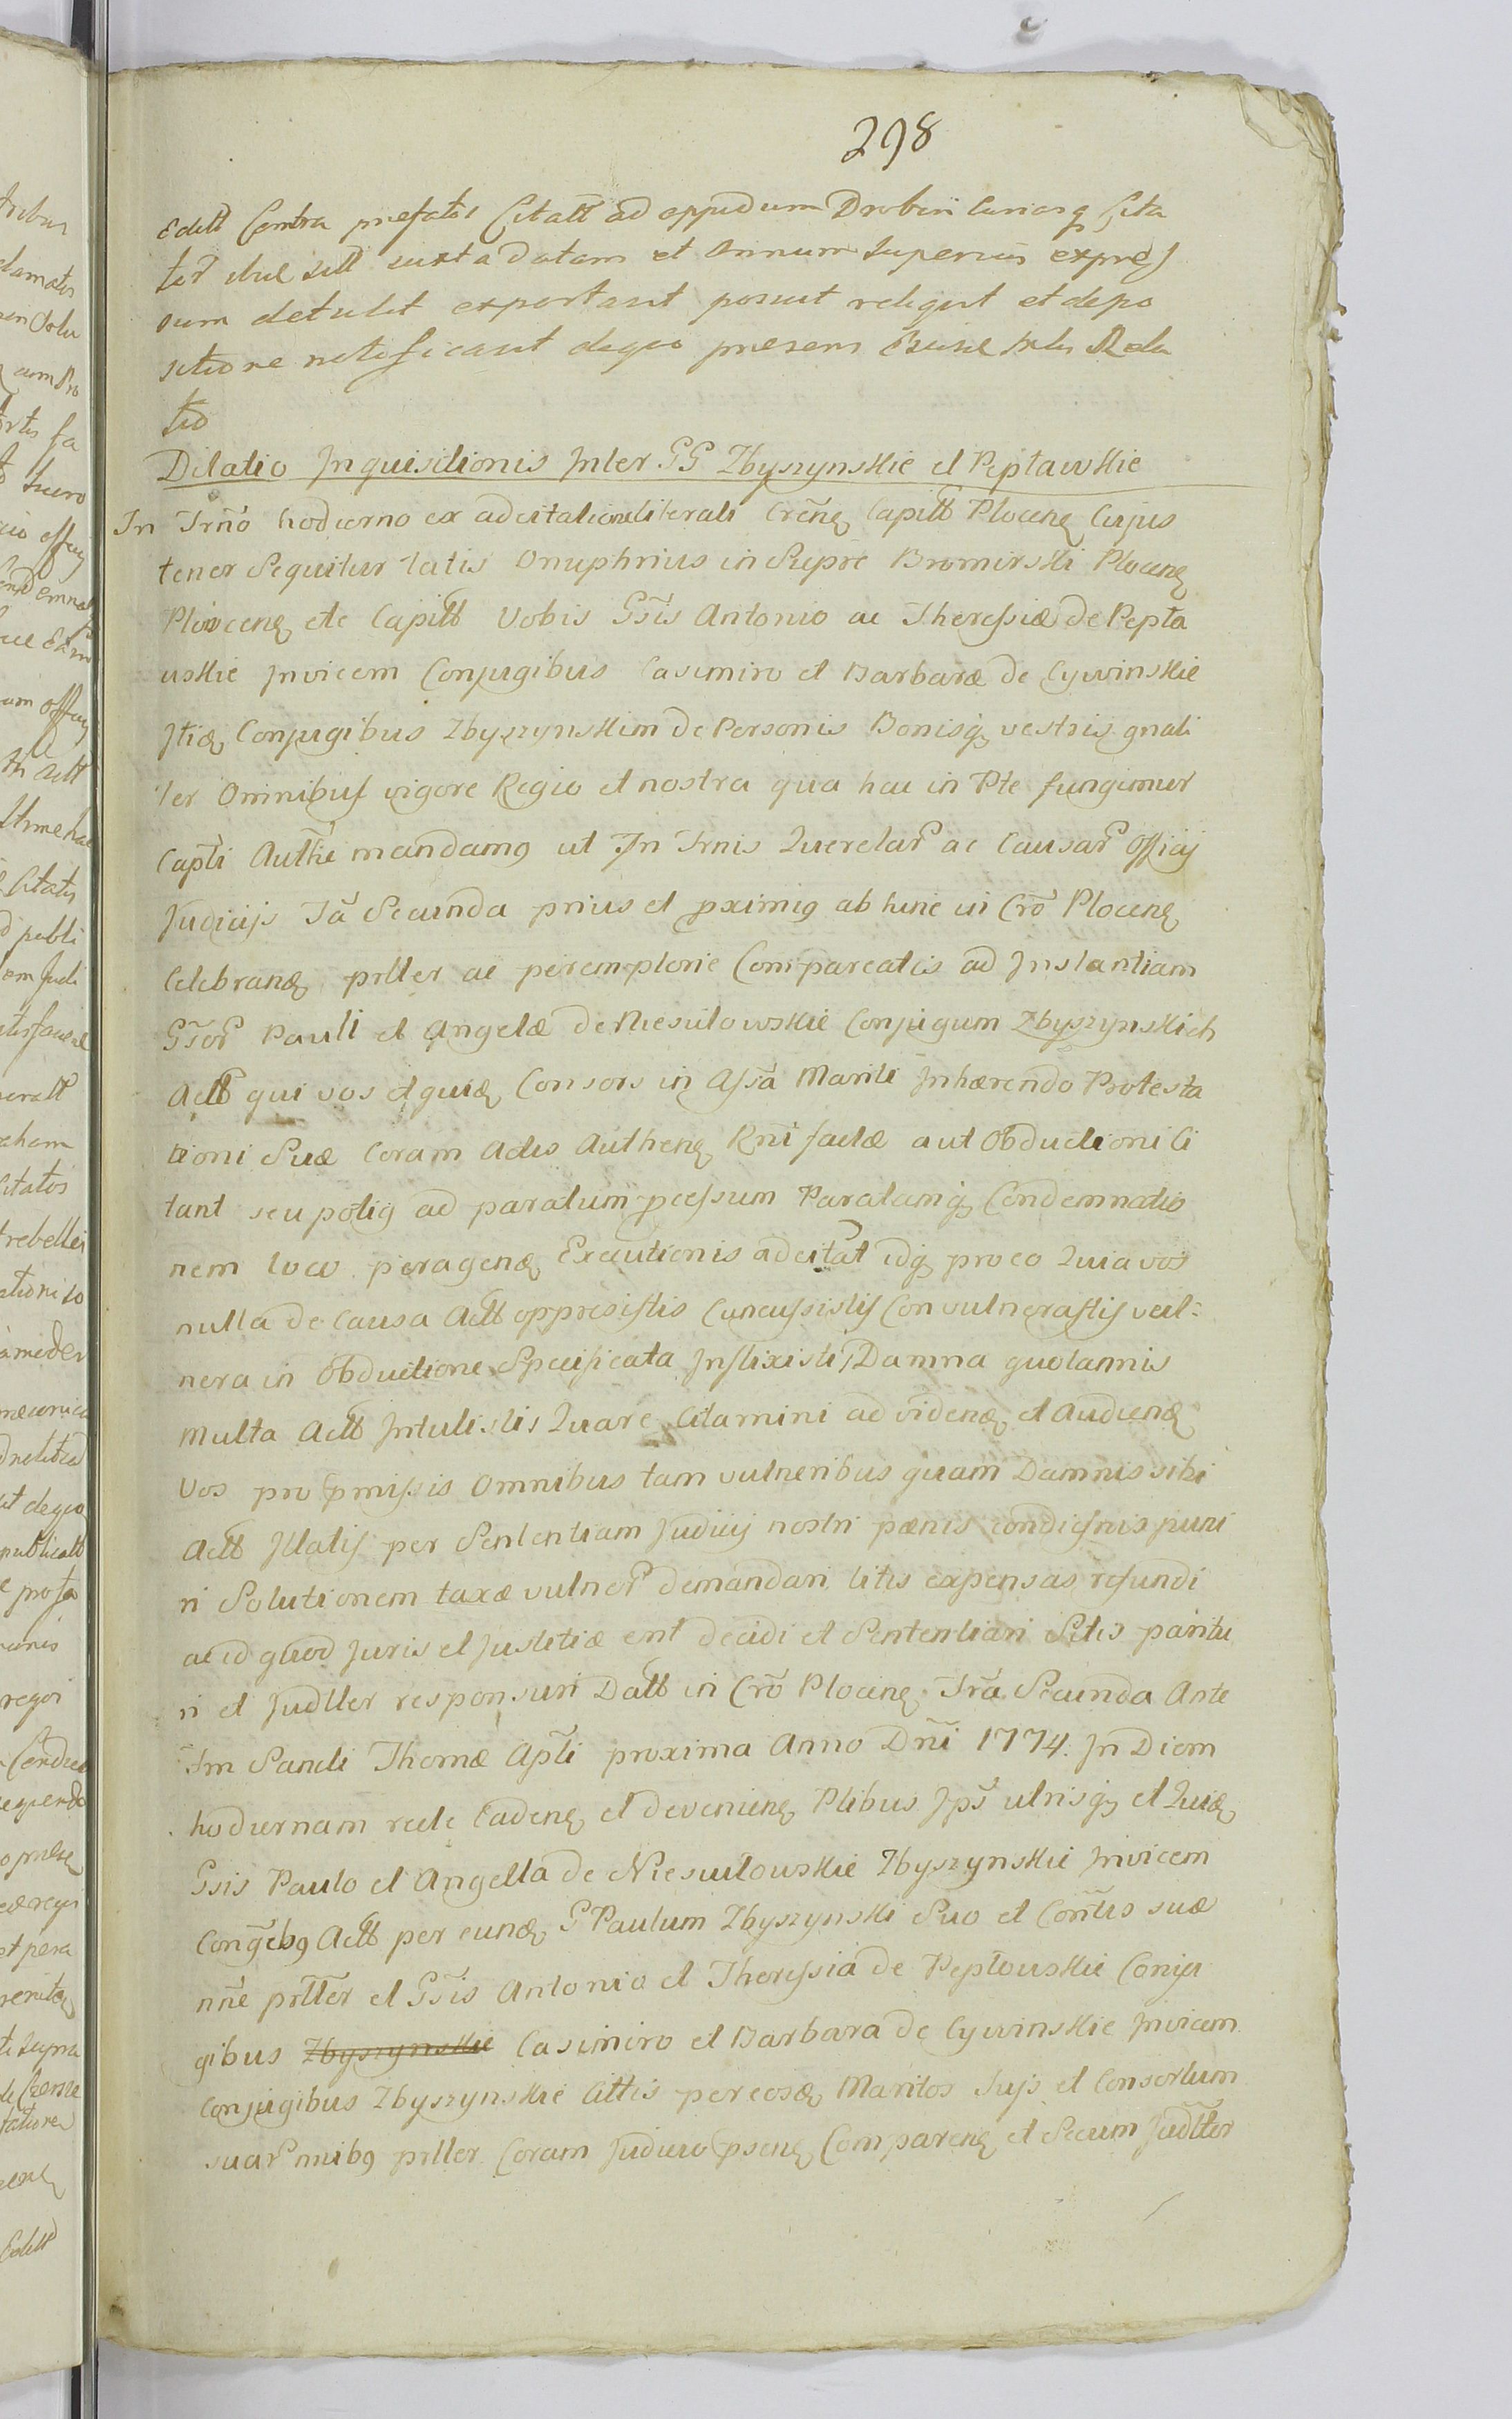 298
Editt Contra prefatos Citatt ad oppidum Drobin Curiasq Cita
tor ibue sitt iuxta Datam et Annum superius expres
sum detulit exportavit posuit reliquit et depo
sitione notificavit dequo presens Relatio
tio
Dilatio Inquisitionis Inter GG Zbyszynskie et Peptawskie
In Trno hodierno ex adcitatione literali Crenq Capitt Plocenq Cujus
tenor Sequitur talis Onuphrius in Siepre Bromirski Plocenq
Plovcenq etc Capitt Vobis Gsis Antonio ac Theressiæ de Pepta
wskie Invicem Conjugibus Casimiro et Barbaræ de Cywinskie
Itiq Conjugibus Zbyszynskim de Personis Bonisq vestris gnali
ter Omnibus vigore Regio et nostra qua hac in Pte fungimur
Capti Authte mandamq ut In Trnis Querelar ac Causar Officij
Judicijs Ia Secunda prius et pximiq ab hinc in Cro Plocenq
Celebranq pntter ac peremptorie Compareatis ad Instantiam
GTor Pauli et Angelæ de Niesulowskie Conjugum Zbyszynskich
Actt qui vos et quiq Consors in Assa Mariti Inhærendo Protesta
tioni Suæ Coram Actis Authenq Rni factæ aut Obductioni Ci
tant seu potiq ad paratum pcessum Paratamq Condemnatio
nem loco peragenq Executionis adcitat idq pro eo Quia vos
nulla de Causa Actt oppresistis Concussistis Convulnerastis vul:
nera in Obductione Specificata Inflixistis Damna quotannis
Multa Actt Intulistis Quare Citamini ad videnq et Audienq
Vos pro pmissis Omnibus tam vulneribus quam Damnis sibi
Actt Illatis per Sententiam Judicij nostri pænis condignis puni
ri Solutionem taxæ vulner demandari litis expensas refundi
ac id quod Juris et Justitiæ erit decidi et Sententiari Sitis paritu
ri et Judtter responsuri Datt in Cro Plocenq Fra Secunda Ante
Fm Sancti Thomæ Apsti proxima Anno Dni 1774. In Diem
hodiernam recte Cadenq et devenienq Ptibus Ips utrisq et Quiq
Gsis Paulo et Angella de Niesiulouskie Zbyszynskie Invicem
Congebq Actt per eunq G Paulum Zbyszynski Suo et Contis suæ
nne pntter et Gsis Antonio et Theressia de Peptouskie Conju
gibus Zbyszynskie Casimiro et Barbara de Cywinskie Invicem
Conjugibus Zbyszynskie Cittis per eosq Maritos Suis et Consortum
suar nnibq pntter Coram Judicio psenq Comparenq et Secum Judtter